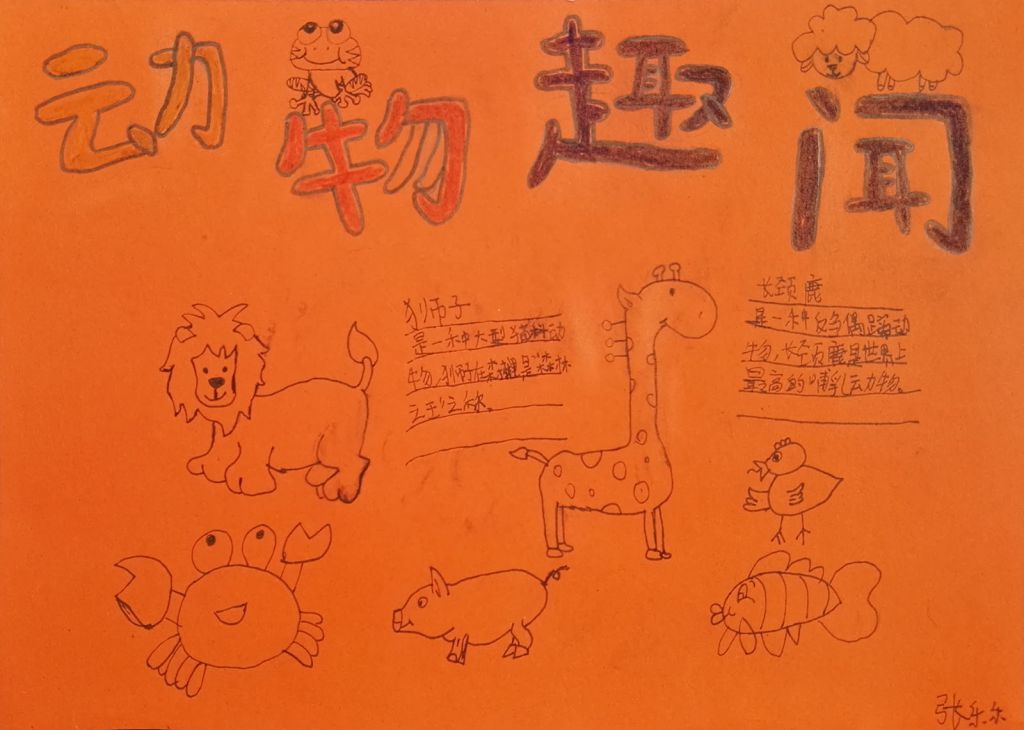 动物趣闻
狮子
是一种大型猫科动
物,狮子在森林是森林
之王之称。
长颈鹿
是一种的偶蹄动
物,长颈鹿是世界上
最高的哺乳动物。
张乐乐